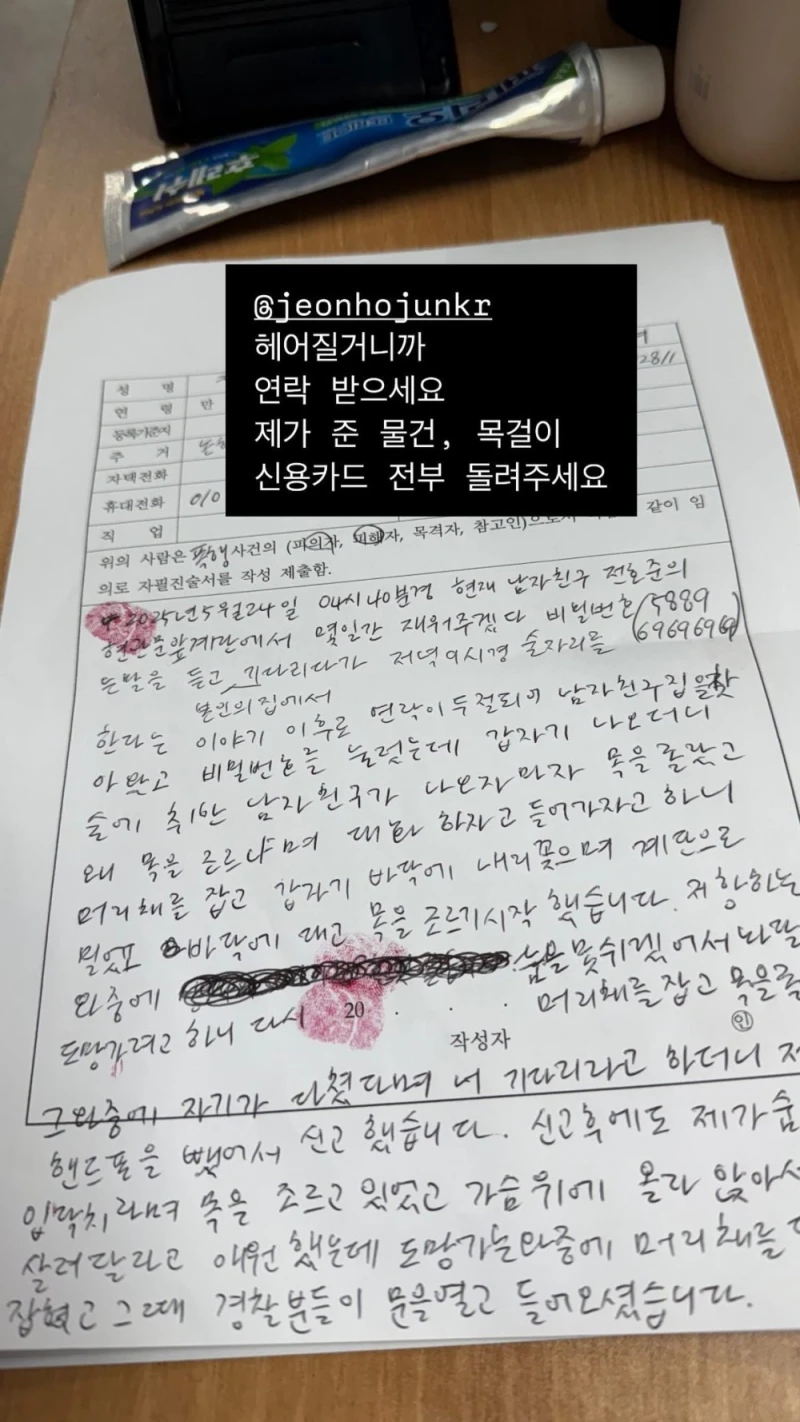 @jeonhojunkr
헤어질거니까
연락 받으세요
제가 준 물건, 목걸이
신용카드 전부 돌려주세요
성 명
연 령 만
등록기준지
주 거
자택전화
휴대전화 010
직 업
위의 사람은 폭행사건의 (피의자, 피해자, 목격자, 참고인)으로서 같이 임
의로 자필진술서를 작성 제출함.
2025년 5월 24일 04시 40분경 현재 남자친구 전호준의
현관문앞계단에서 몇일간 재워주겠다 비밀번호(5889
69696969)
는말을 듣고 기다리다가 저녁 9시경 술자리를
본인의집에서
한다는 이야기 이후로 연락이 두절되어 남자친구집을찾
아 왔고 비밀번호를 눌렀는데 갑자기 나오더니
술에 취한 남자친구가 나오자마자 목을 졸랐고
왜 목을 조르냐며 대화 하자고 들어가자고 하니
머리채를 잡고 갑자기 바닥에 내리꽂으며 계단으로
밀었고 바닥에 대고 목을 조르기시작 했습니다. 저항하는
와중에 숨을못쉬겠어서 놔달
도망가려고 하니 다시 머리채를 잡고 목을
20 . . .
작성자 인
그와중에 자기가 다쳤다며 너 기다리라고 하더니
핸드폰을 뺏어서 신고 했습니다. 신고후에도 제가 숨
입닥치라며 목을 조르고 있었고 가슴위에 올라 앉아서
살려달라고 애원 했는데 도망가는와중에 머리채를
잡혔고 그때 경찰분들이 문을열고 들어오셨습니다.